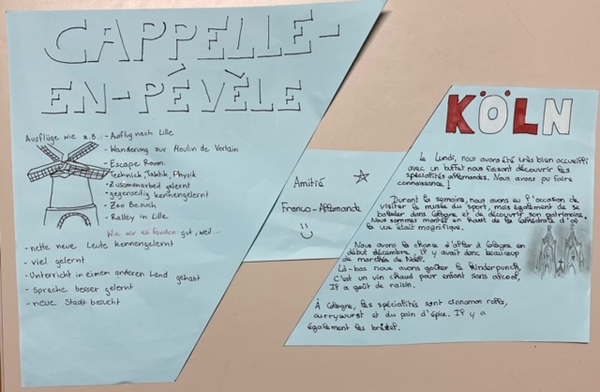 CAPPELLE-
EN-PÉVÈLE
Ausflüge wie z.B.: - Ausflug nach Lille
- Wanderung zur Moulin de Vertain
- Escape Room:
Technick, Taktik, Physik
- Zusammenarbeit gelernt
- gegenseitig kennengelernt
- Zoo Besuch
- Ralley in Lille
Wie wir es fanden gut, weil...
- nette neue Leute kennengelernt
- viel gelernt
- Unterricht in einem anderen Land gehabt
- Sprache besser gelernt
- neue Stadt besucht
Amitié
Franco-Allemande
KÖLN
Le Lundi, nous avons été très bien accueilli
avec un buffet nous faisant découvrir les
spécialités allemandes. Nous avons pu faire
connaissance!
Durant la semaine, nous avons eu l'occasion de
visiter le musée du sport, mais également de se
balader dans Cologne et de découvrir son patrimoine.
Nous sommes montés en haut de la Cathédrale d'où
la vue était magnifique.
Nous avons la chance d'aller à Cologne en
début décembre, il y avait donc beaucoup
de marchés de Noël.
Là-bas nous avons goûter le Kinderpunch.
C'est un vin chaud pour enfant sans alcool,
Il a goût de raisin.
À Cologne, les spécialités sont cinnamon rolls,
currywurst et du pain d'épice. Il y a
également les